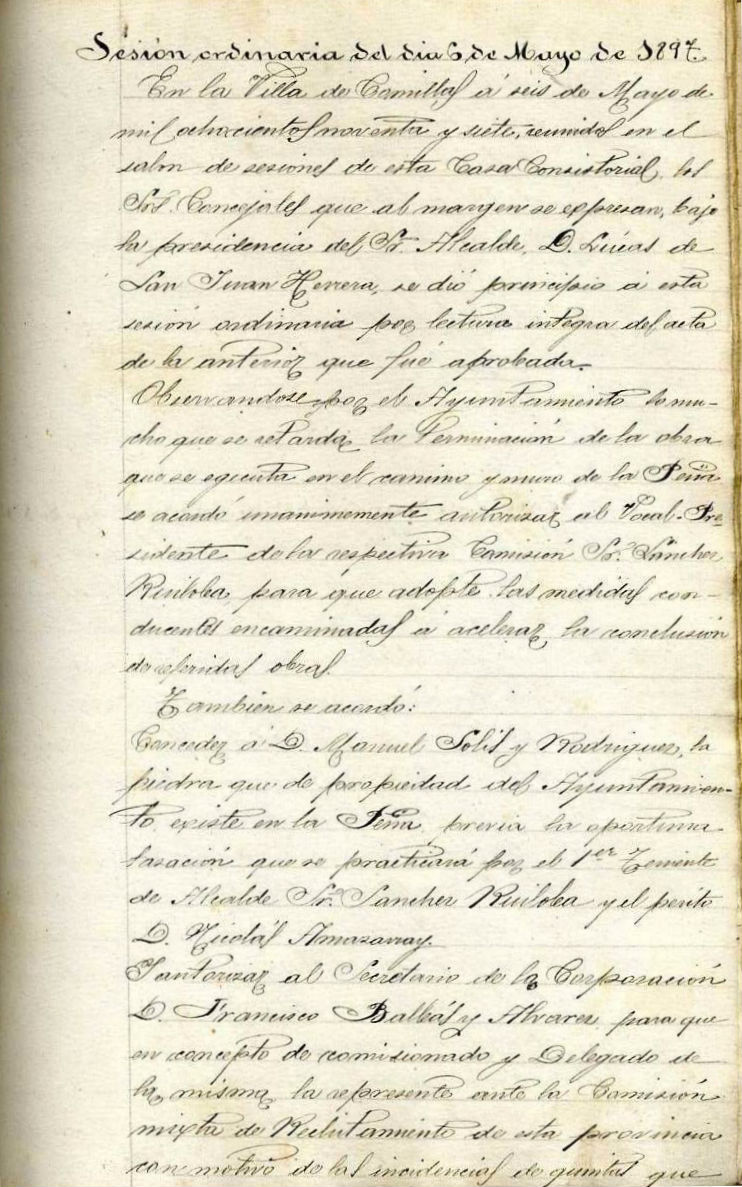 Sesión ordinaria del dia 6 de Mayo de 1897.
En la Villa de Comillas á seis de Mayo de
mil ochocientos noventa y siete, reunidos en el
salon de sesiones de esta Casa Consistorial, los
Srs. Concejales que al margen se expresan, bajo
la presidencia del Sr. Alcalde, D. Lúcas de
San Juan Herrera, se dió principio á esta
sesión ordinaria por lectura integra del acta
de la anterior que fué aprobada.
Observandose por el Ayuntamiento lo mu-
cho que se retarda la terminación de la obra
que se egecuta en el camino y muro de la Peña
se acordó unanimemente autorizar al Vocal-Pre-
sidente de la respectiva Comisión Sr. Sánchez
Ruiloba para que adopte las medidas con-
ducentes encaminadas á acelerar la conclusión
de referidas obras.
Tambien se acordó:
Conceder á D. Manuel Solis y Rodriguez, la
piedra que de propiedad del Ayuntamien-
to existe en la Peña, previa la oportuna
tasación que se practicará por el 1er Teniente
de Alcalde Sr. Sanchez Ruiloba y el perito
D. Nicolás Amazarray.
Y autorizar al Secretario de la Corporación
D. Francisco Balbás y Alvarez para que
en concepto de comisionado y Delegado de
la misma la represente ante la Comisión
mixta de Reclutamiento de esta provincia
con motivo de las incidencias de quintas que